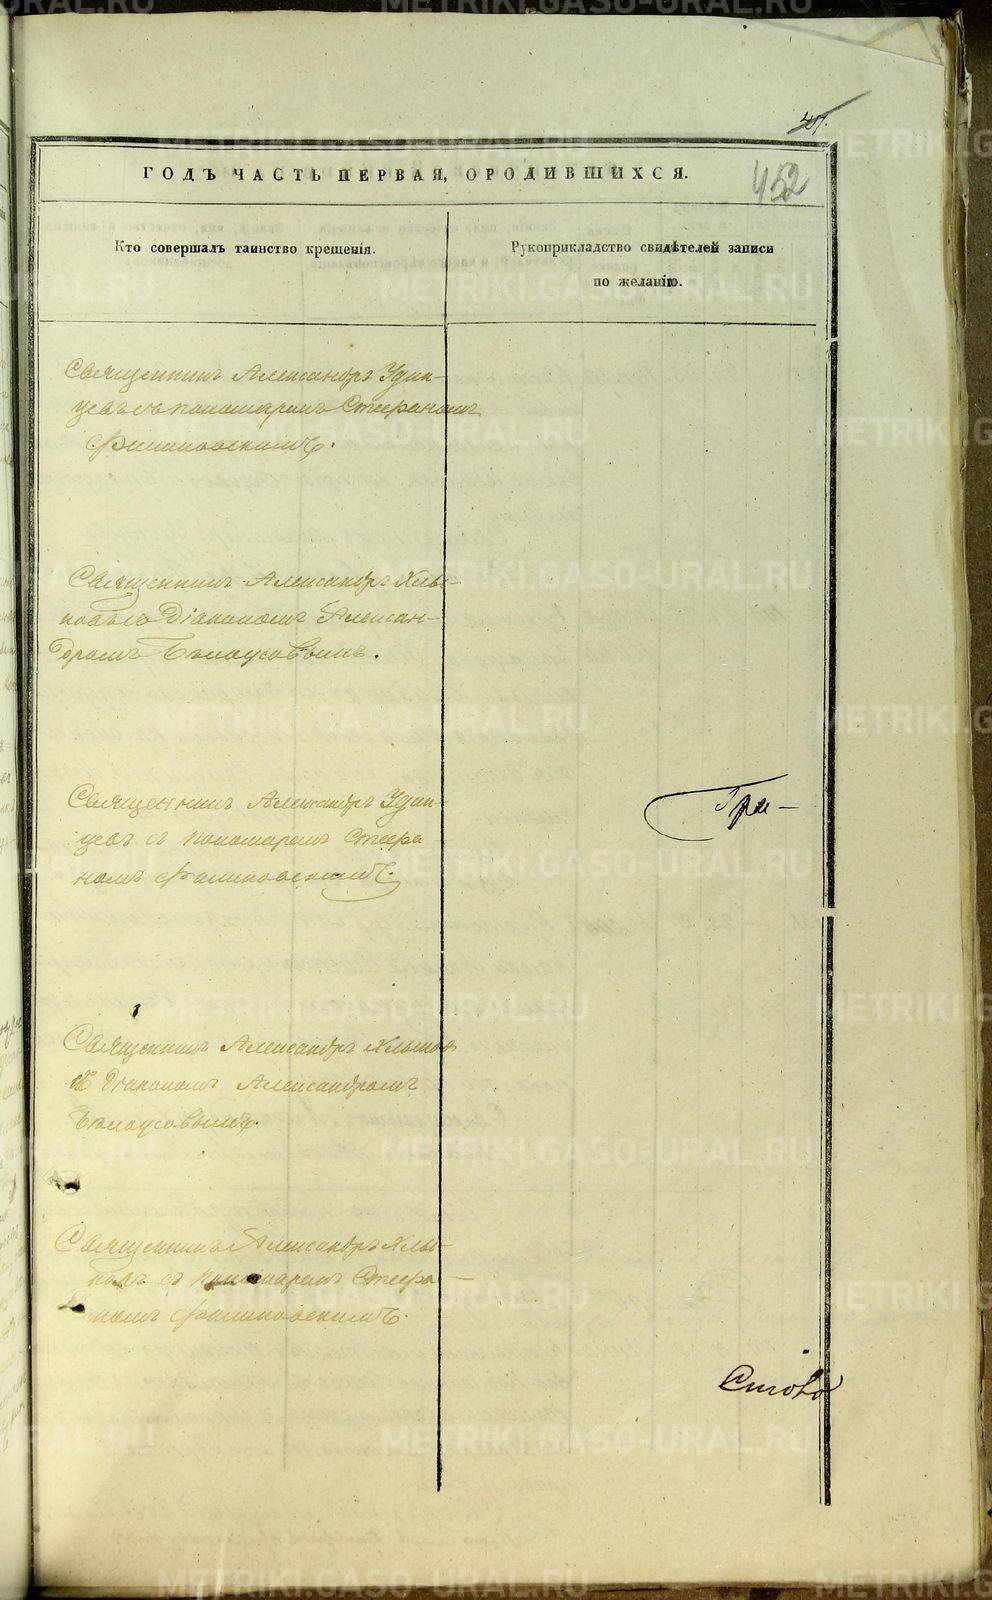 41.
452
ГОДЪ ЧАСТЬ ПЕРВАЯ, О РОДИВШИХСЯ.
Кто совершалъ таинство крещенія.
Рукоприкладство свидѣтелей записи
по желанію.
Священникъ Александръ Удин-
цевъ съ пономаремъ Стефаномъ
Филиповскимъ.
Священникъ Александръ Хлы-
новъ съ Діакономъ Алексан-
дромъ Бѣлоусовымъ.
Священникъ Александръ Удин-
цевъ съ пономаремъ Стефа-
номъ Филиповскимъ.
Гри-
Священникъ Александръ Хлынов
съ Діакономъ Александромъ
Бѣлоусовымъ.
Священникъ Александръ Хлы-
новъ съ пономаремъ Стефа-
номъ Филиповскимъ.
METRIKI.GASO-URAL.RU